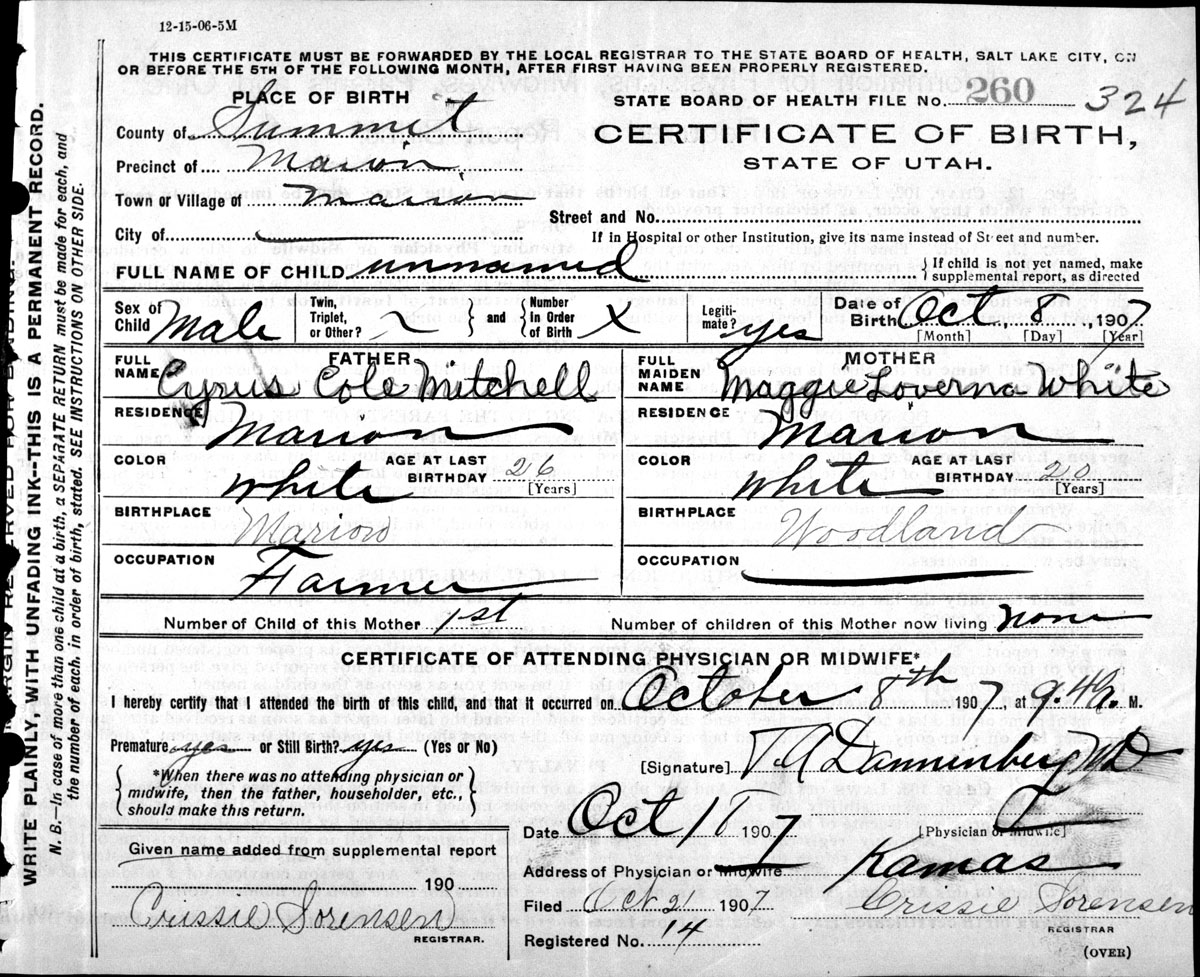 12-15-06-5M
THIS CERTIFICATE MUST BE FORWARDED BY THE LOCAL REGISTRAR TO THE STATE BOARD OF HEALTH, SALT LAKE CITY, ON
OR BEFORE THE 5TH OF THE FOLLOWING MONTH, AFTER FIRST HAVING BEEN PROPERLY REGISTERED.
PLACE OF BIRTH
STATE BOARD OF HEALTH FILE No. 260 324
County of Summit
CERTIFICATE OF BIRTH,
STATE OF UTAH.
Precinct of Marion
Town or Village of Marion
Street and No.
City of
If in Hospital or other Institution, give its name instead of Street and number.
FULL NAME OF CHILD unnamed
{ If child is not yet named, make
supplemental report, as directed
Sex of Child Male
Twin, Triplet, or Other? } and { Number In Order of Birth X
Legitimate? yes
Date of Birth Oct, 8, 1907
[Month] [Day] [Year]
FATHER
FULL NAME Cyrus Cole Mitchell
RESIDENCE Marion
COLOR White
AGE AT LAST BIRTHDAY 26
[Years]
BIRTHPLACE Marion
OCCUPATION Farmer
MOTHER
FULL MAIDEN NAME Maggie Loverna White
RESIDENCE Marion
COLOR White
AGE AT LAST BIRTHDAY 20
[Years]
BIRTHPLACE Woodland
OCCUPATION
Number of Child of this Mother 1st
Number of children of this Mother now living none
CERTIFICATE OF ATTENDING PHYSICIAN OR MIDWIFE*
I hereby certify that I attended the birth of this child, and that it occurred on October 8th 1907, at 9.4 a. M.
Premature yes or Still Birth? yes (Yes or No)
{ *When there was no attending physician or
midwife, then the father, householder, etc.,
should make this return. }
[Signature] Dannenberg MD
[Physician or Midwife]
Date Oct 18 1907
Address of Physician or Midwife Kamas
Filed Oct 21 1907
Crissie Sorensen
REGISTRAR
Registered No. 14
(OVER)
Given name added from supplemental report
190
Crissie Sorensen
REGISTRAR.
MARGIN RESERVED FOR BINDING.
WRITE PLAINLY, WITH UNFADING INK--THIS IS A PERMANENT RECORD.
N. B.—In case of more than one child at a birth, a SEPARATE RETURN must be made for each, and
the number of each, in order of birth, stated. SEE INSTRUCTIONS ON OTHER SIDE.